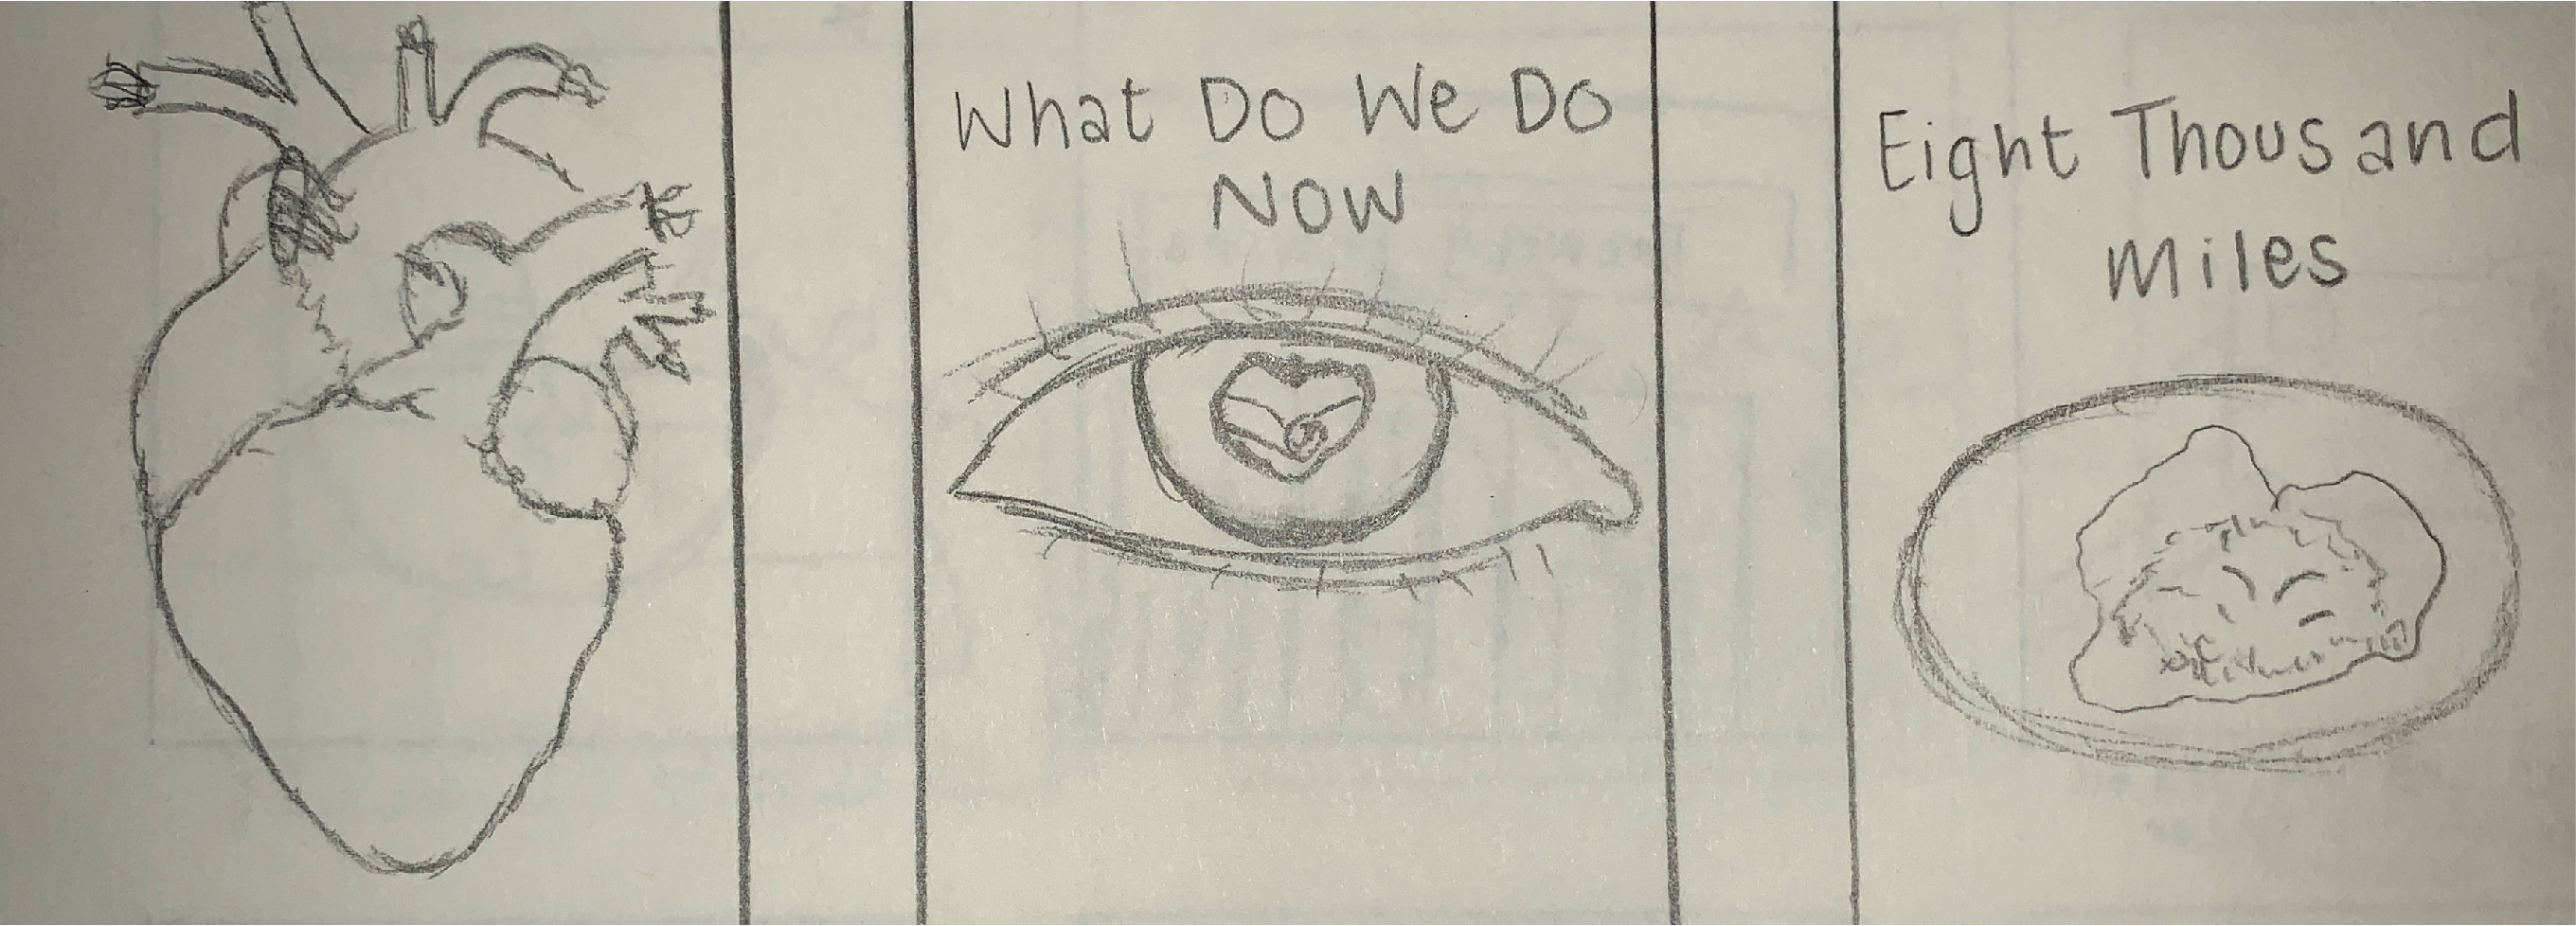 What Do We Do
Now
Eight Thousand
Miles